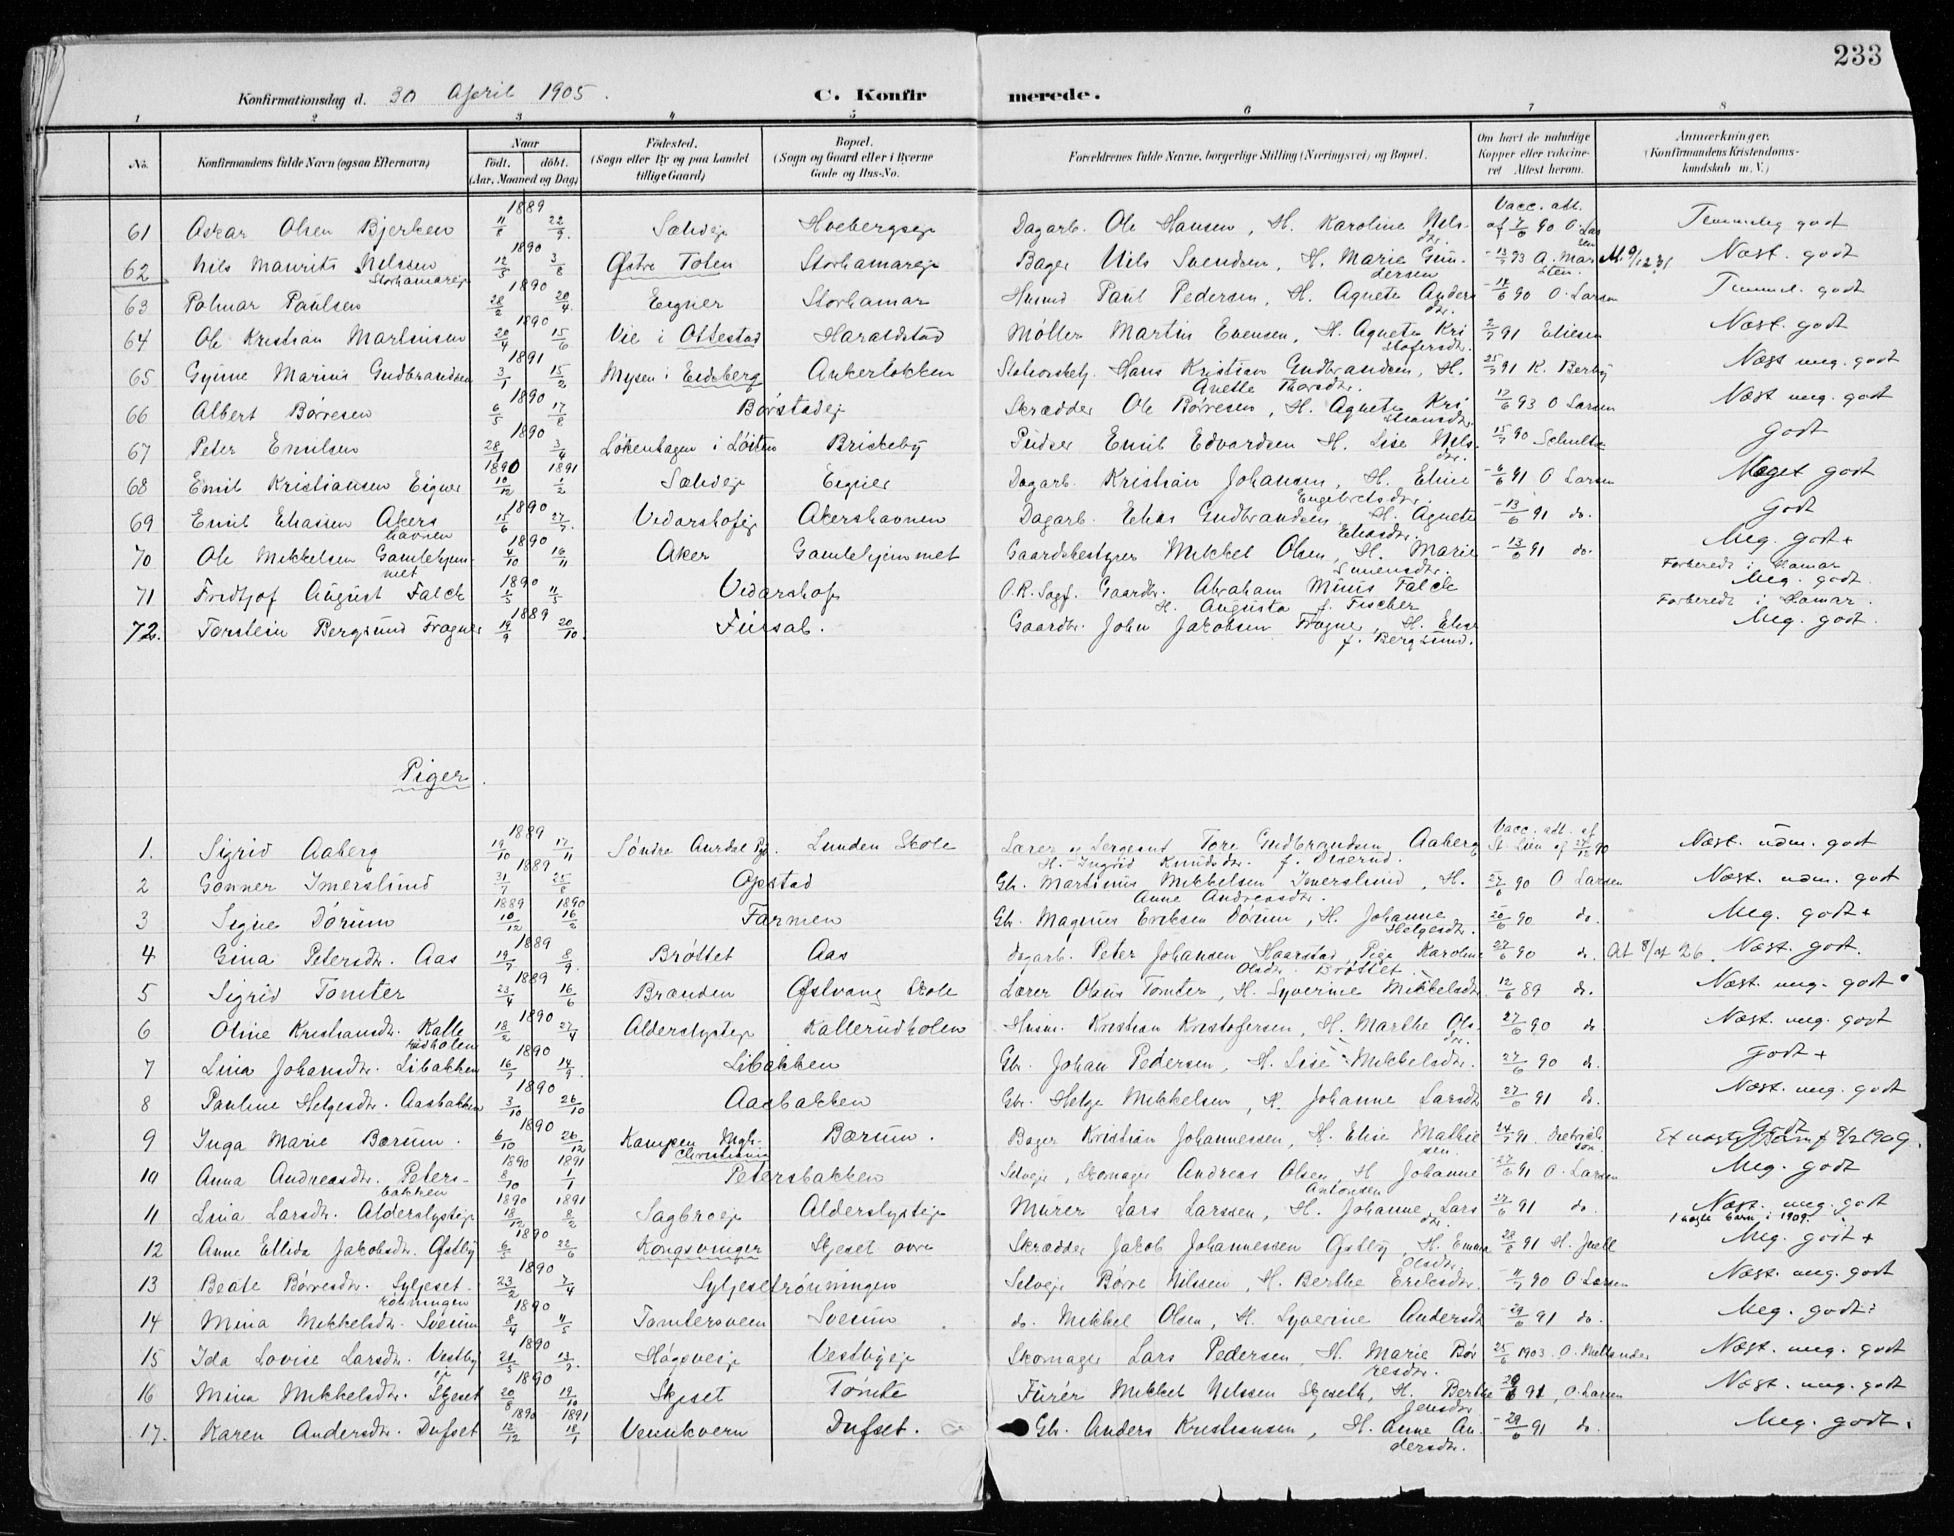 233
Konfirmationsdag d. 30 April 1905. C. Konfirmerede.
1 2 3 4 5 6 7 8
No. Konfirmandens fulde Navn (ogsaa Efternavn) Naar født. døbt. (Aar, Maaned og Dag) Fødested. (Sogn eller By og paa Landet tillige Gaard) Bopæl. (Sogn og Gaard eller i Byerne Gade og Hus-No. Forældrenes fulde Navne, borgerlige Stilling (Næringsvei) og Bopæl. Om havt de naturlige Kopper eller vaccineret Attest herom. Anmærkninger. (Konfirmandens Kristendomskundskab m. V.)
61 Oskar Olsen Bjerken 1889 11/8 22/9 Sælidej Hoebergseje Dagarb. Ole Hansen, H. Karoline Nilsdtr. Vacc. att. af 7/6 90 O. Larsen Temmelig godt
62 Nils Maurits Nilssen Storhamareje 1890 12/5 3/8 Østre Toten Storhamareje Bager Nils Svendsen, H. Marie Gundersen 13/7 93 A. Marsten Næst. godt
63 Palmar Paulsen 1890 28/2 20/4 Eigner Storhamar Husmd Paul Pedersen, H. Agnete Andersdtr. 14/6 90 O. Larsen Temmel. godt
64 Ole Kristian Martinsen 1890 20/4 15/6 Vie i Ottestad Haraldstad Møller Martin Evensen, H. Agnete Kristofersdtr. 2/7 91 Eliesen Næst. godt
65 Gyinne Marius Gudbrandsen 1891 3/1 15/2 Mysen i Eidsberg Ankerløkken Stationsbetj. Hans Kristian Gudbrandsen, H. Anette Thorsdtr. 25/7 91 K. Berby Næst meg. godt
66 Albert Børresen 1890 6/5 17/8 Børstadeje Skrædder Ole Børresen, H. Agnete Kristiansdtr. 17/6 93 O Larsen Næst meg. godt
67 Peter Emilsen 1890 28/1 3/4 Løkenhagen i Løiten Brickeby Pudser Emil Edvardsen H. Lise Nilsdtr. 15/7 90 Schultze Godt
68 Emil Kristiansen Eigner 1890 10/12 1891 1/2 Sælideje Eigner Dagarb. Kristian Johansen, H. Eline Engebretsdtr. 6/6 91 O Larsen Meget godt
69 Emil Eliassen Akershavnen 1890 15/6 27/7. Vidarshofeje Akershavnen Dagarb. Elias Gudbrandsen H. Agnete Eliasdtr. 13/6 91 do. Godt
70 Ole Mikkelsen Gamlehjemmet 1890 4/10 16/11 Aker Gamlehjemmet Gaardsbestyrer Mikkel Olsen, H. Marie Simensdtr. 13/6 91 do. Meg. godt+
71 Fridtjof August Falck 1890 1/5 11/5 Vidarshof O.R.Sagf. Gaardbr. Abraham Minis Falck H. Augusta f. Fischer Forberedt i Hamar Meg. godt.
72. Torstein Bergsund Frogner 1889 14/9 20/10 Fürsal. Gaardbr. John Jakobsen Frogner, H. Elise f. Bergsund. Forberedt i Hamar. Meg. godt.
Piger
1. Sigrid Aaberg 1889 19/10 17/11 Søndre Aurdal Pgd. Lunden Skole Lærer og Sergeant Tore Gudbrandsen Aaberg H. Ingrid Knudsdtr. Vacc. att. af St. Lien af 27/12 90 Næst. udm. godt
2 Gonner Imerslund 1889 31/7 25/8 Opstad Gbr. Martinius Mikkelsen Imerslund, H. Anne Andreasdtr. 27/6 90 O Larsen Næst. udm. godt
3 Signe Dørum 1889 10/12 1890 16/2 Farmen Gbr. Magnus Eriksen Dørum, H. Johanne Helgesdtr. 20/6 90 do. Meg. godt+
4 Gina Petersdtr. Aas 1889 19/7 8/9. Brøttet Aas Dagarb. Peter Johansen Haarstad, Pige Karoline Olsdtr. Brøttet 27/6 90 do. Næst. godt.
5 Sigrid Tomter 1889 23/4 16/6 Brænden Østvang Skole Lærer Olaus Tomter, H. Syverine Mikkelsdtr. 12/6 89 do. Næst. meg. godt
6 Oline Kristiansdtr. Kallerudholen 1890 18/2 27/4 Alderslysteje Kallerudholen Husm. Kristian Kristofersen, H. Marthe Olsdtr. 27/6 90 do Næst. meg. godt
7 Lina Johansdtr. Libakken 1890 16/7 14/9. Libakken Gbr. Johan Pedersen, H. Lise Mikkelsdtr. 27/6 90 do. Godt+
8 Pauline Helgesdtr. Aasbakken 1890 3/10 26/10 Aasbakken Gbr. Helge Mikkelsen, H. Johanne Larsdtr 27/6 91 do. Næst. meg. godt
9 Inga Marie Bærum. 1890 6/10 26/12 Kampen Mgh. Christiania Bærum. Bager Kristian Johannessen, H. Elise Mathiesen. 24/7 91. Dietrichson. Godt
10 Anna Andreasdtr. Petersbakken 1890 8/10 1891 1/1 Petersbakken Selvejr, Skomager Andreas Olsen, H Johanne Antonsen 27/6 91 O. Larsen Meg. godt
11 Lina Larsdtr. Alderslysteje 1890 18/12 1891 8/2 Sagbroeje Alderslysteje Murer Lars Larssen, H. Johanne Larsdtr. 27/6 91 do. Næst. meg. godt 1 uægte barn i 1909.
12 Anne Ellida Jakobsdtr. Østby 1890 6/5 22/6 Kongsvinger Skjeset øvre Skrædder Jakob Johannessen Østby, H. Emma Olsdtr. 28/8 91 H. Juell Meg. godt+
13 Beate Børresdtr. Syljesetrønningen 1890 23/2 7/4 Syljesetrønningen Selvejr Børre Nilssen, H. Berthe Eriksdtr. 11/7 90 O Larsen Næst. meg. godt
14 Mina Mikkelsdtr. Sveum 1890 8/4 11/5 Tomtersveen Sveum do. Mikkel Olsen, H. Syverine Andersdtr 29/6 91 do. Meg. godt
15 Ida Lovise Larsdtr. Vestbyeje 1890 21/5 13/7. Høgsveje Vestbyeje Skomager Lars Pedersen, H. Marie Børresdtr. 25/6 1903. O. Mellander Næst. meg. godt
16 Mina Mikkelsdtr. Skjeset 1890 20/8 19/10 Skjeset Tømte Furér Mikkel Nilssen Skjeseth, H. Berthe Jensdtr 29/6 91, O. Larsen Næst. meg. godt
17. Karen Andersdtr. Dufset 1890 12/12 1891 18/1 Vennkvern Dufset. Gbr. Anders Kristiansen, H. Anne Andersdtr. 29/6 91 do. Meg. godt.